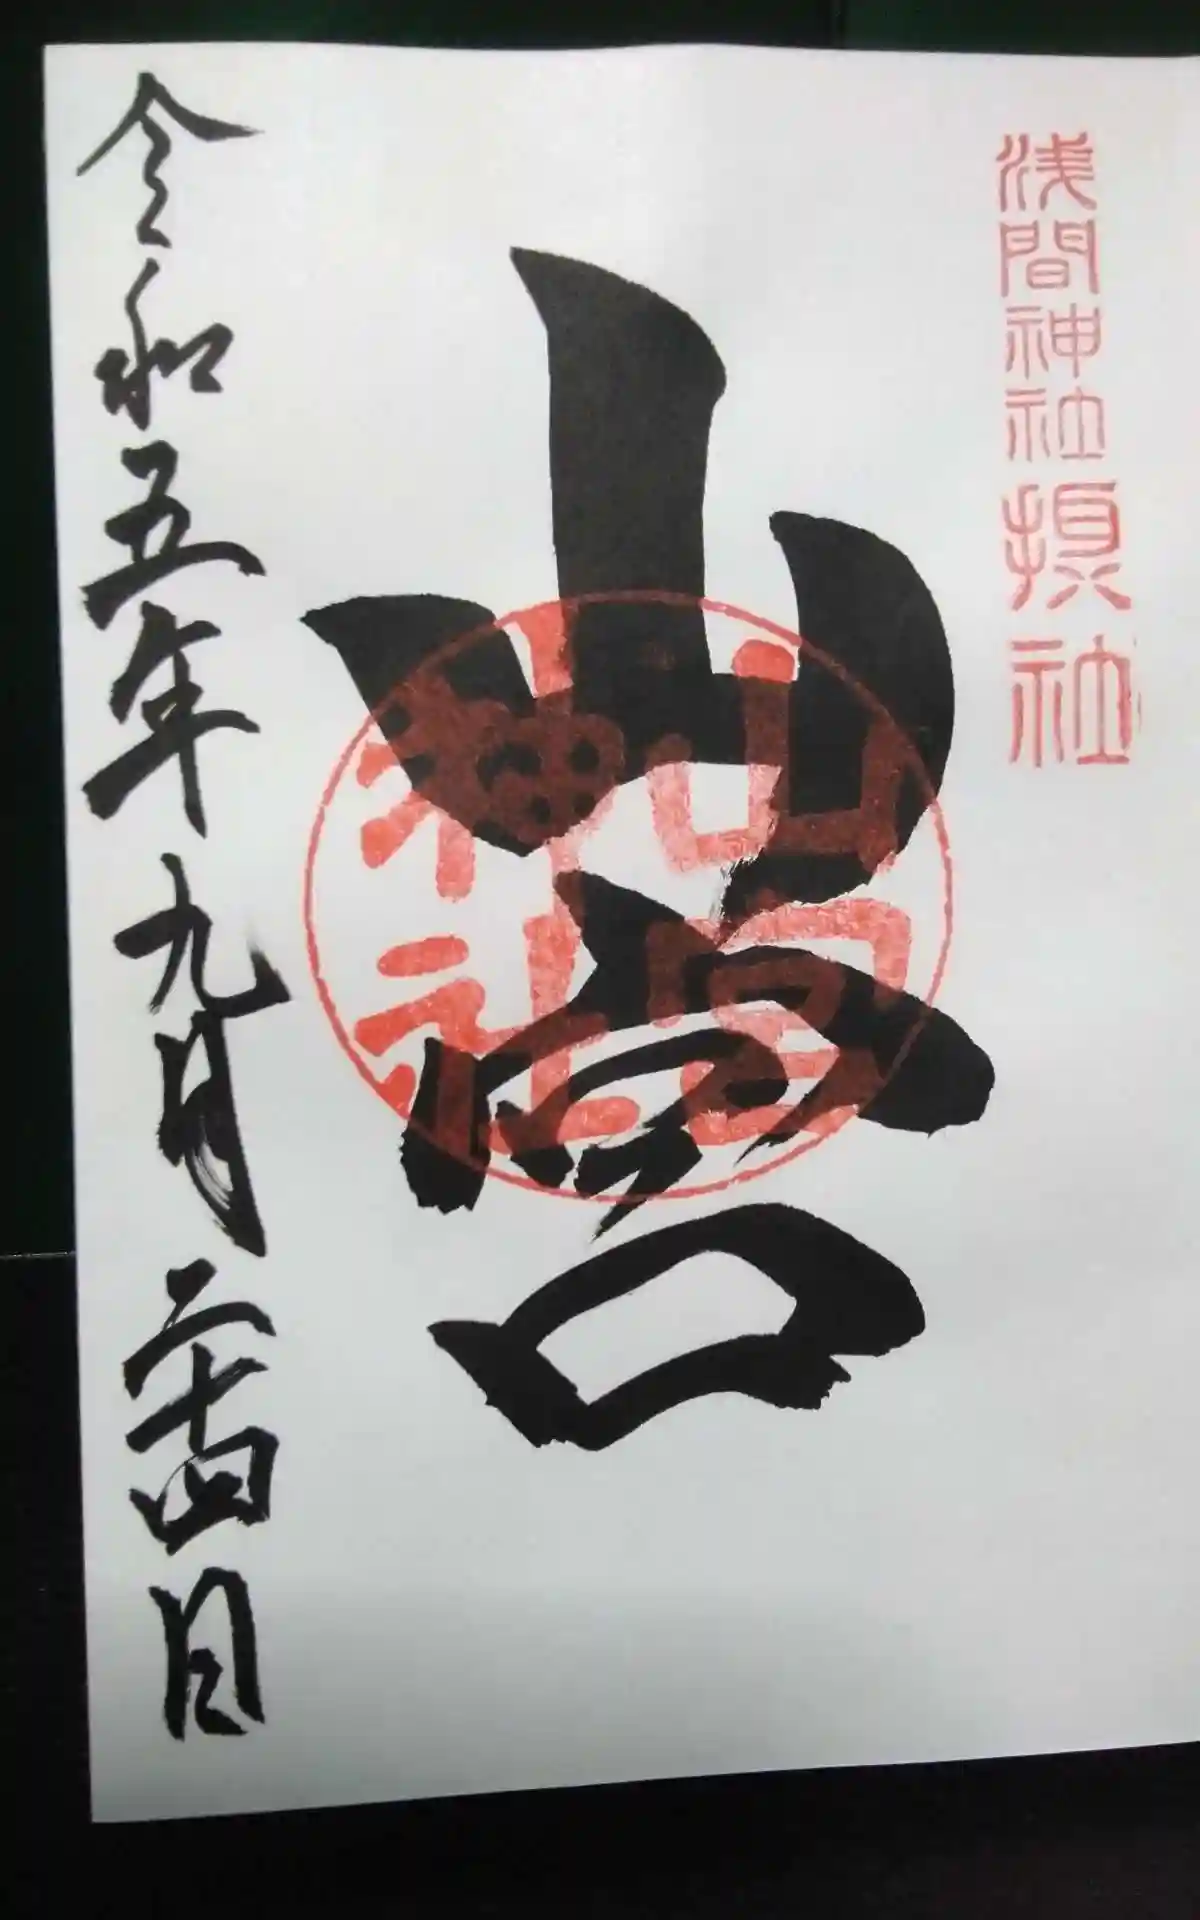 浅間神社摂社
山宮
山宮神社
令和五年九月二十四日